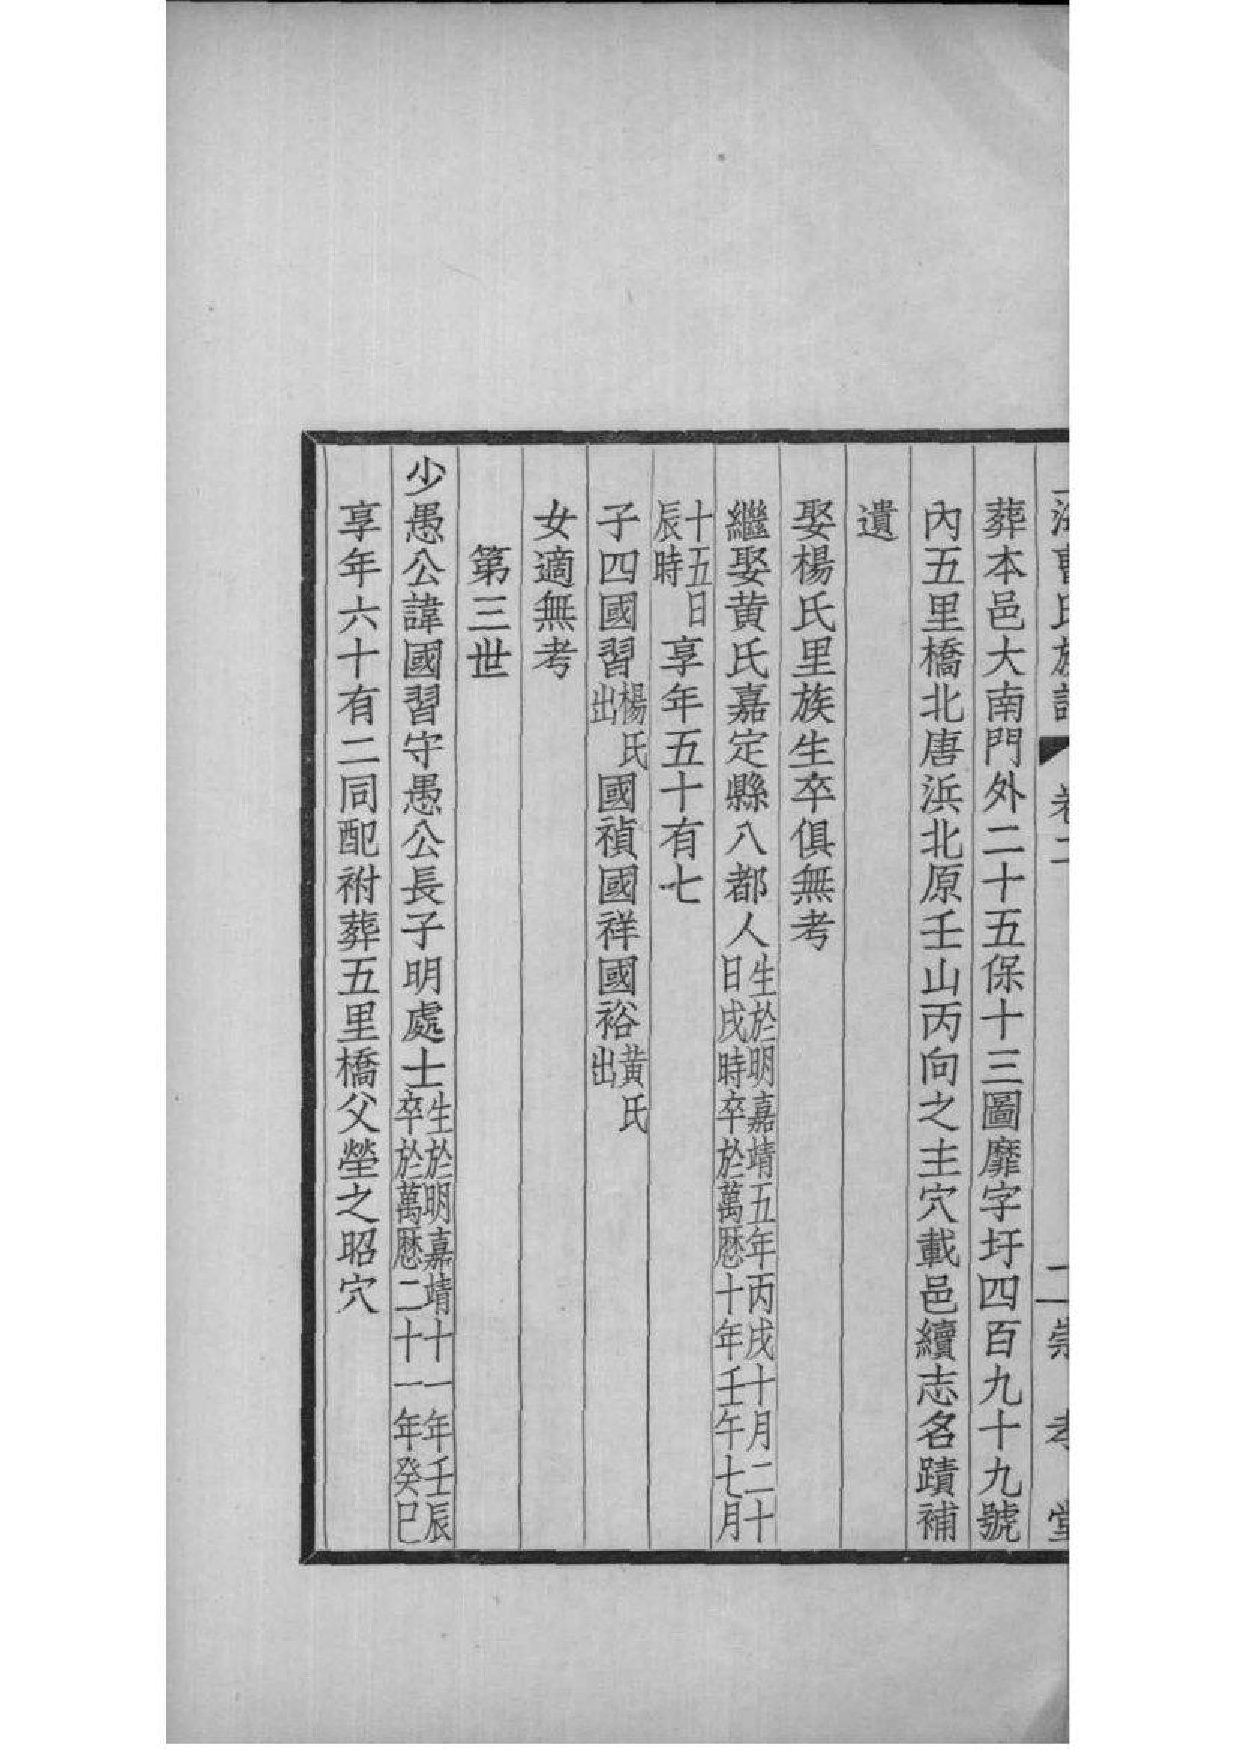 海曹氏族譜 卷二 二 崇孝堂
葬本邑大南門外二十五保十三圖靡字圩四百九十九號
內五里橋北唐浜北原壬山丙向之主穴載邑續志名蹟補
遺
娶楊氏里族生卒俱無考
繼娶黄氏嘉定縣八都人生於明嘉靖五年丙戌十月二十日戌時卒於萬厯十年壬午七月
十五日辰時享年五十有七
子四國習楊氏出國禎國祥國裕黄氏出
女適無考
第三世
少愚公諱國習守愚公長子明處士生於明嘉靖十一年壬辰卒於萬厯二十一年癸巳
享年六十有二同配祔葬五里橋父塋之昭穴